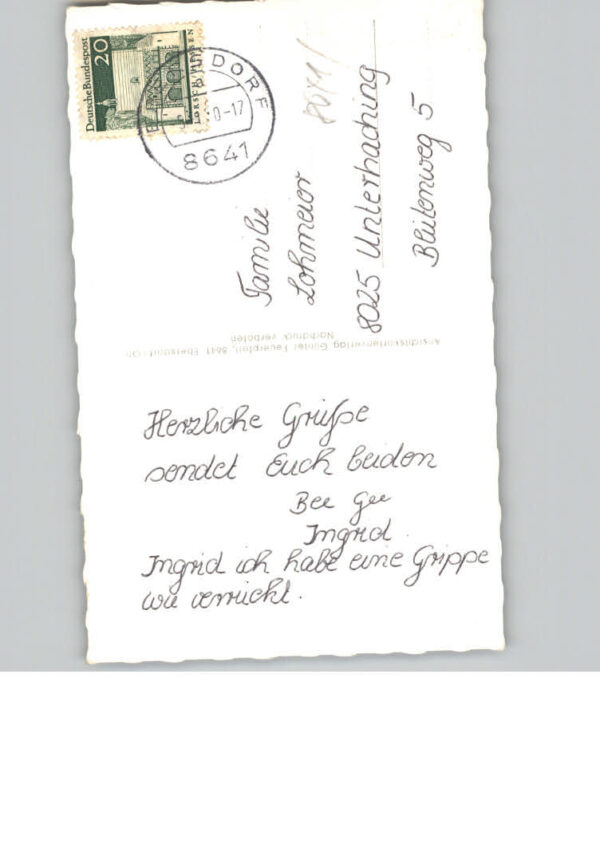 Deutsche Bundespost
20
LORSCH HESSEN
DORF
0-17
8641
8011/
Familie
Lohmeier
8025 Unterhaching
Blütenweg 5
Ansichtskartenverlag Günter Feuerpfeil, 8641 Ebersdorf/Ofr.
Nachdruck verboten
Herzliche Grüße
sendet Euch beiden
Bee Gee
Ingrid.
Ingrid ich habe eine Grippe
wie verrückt.